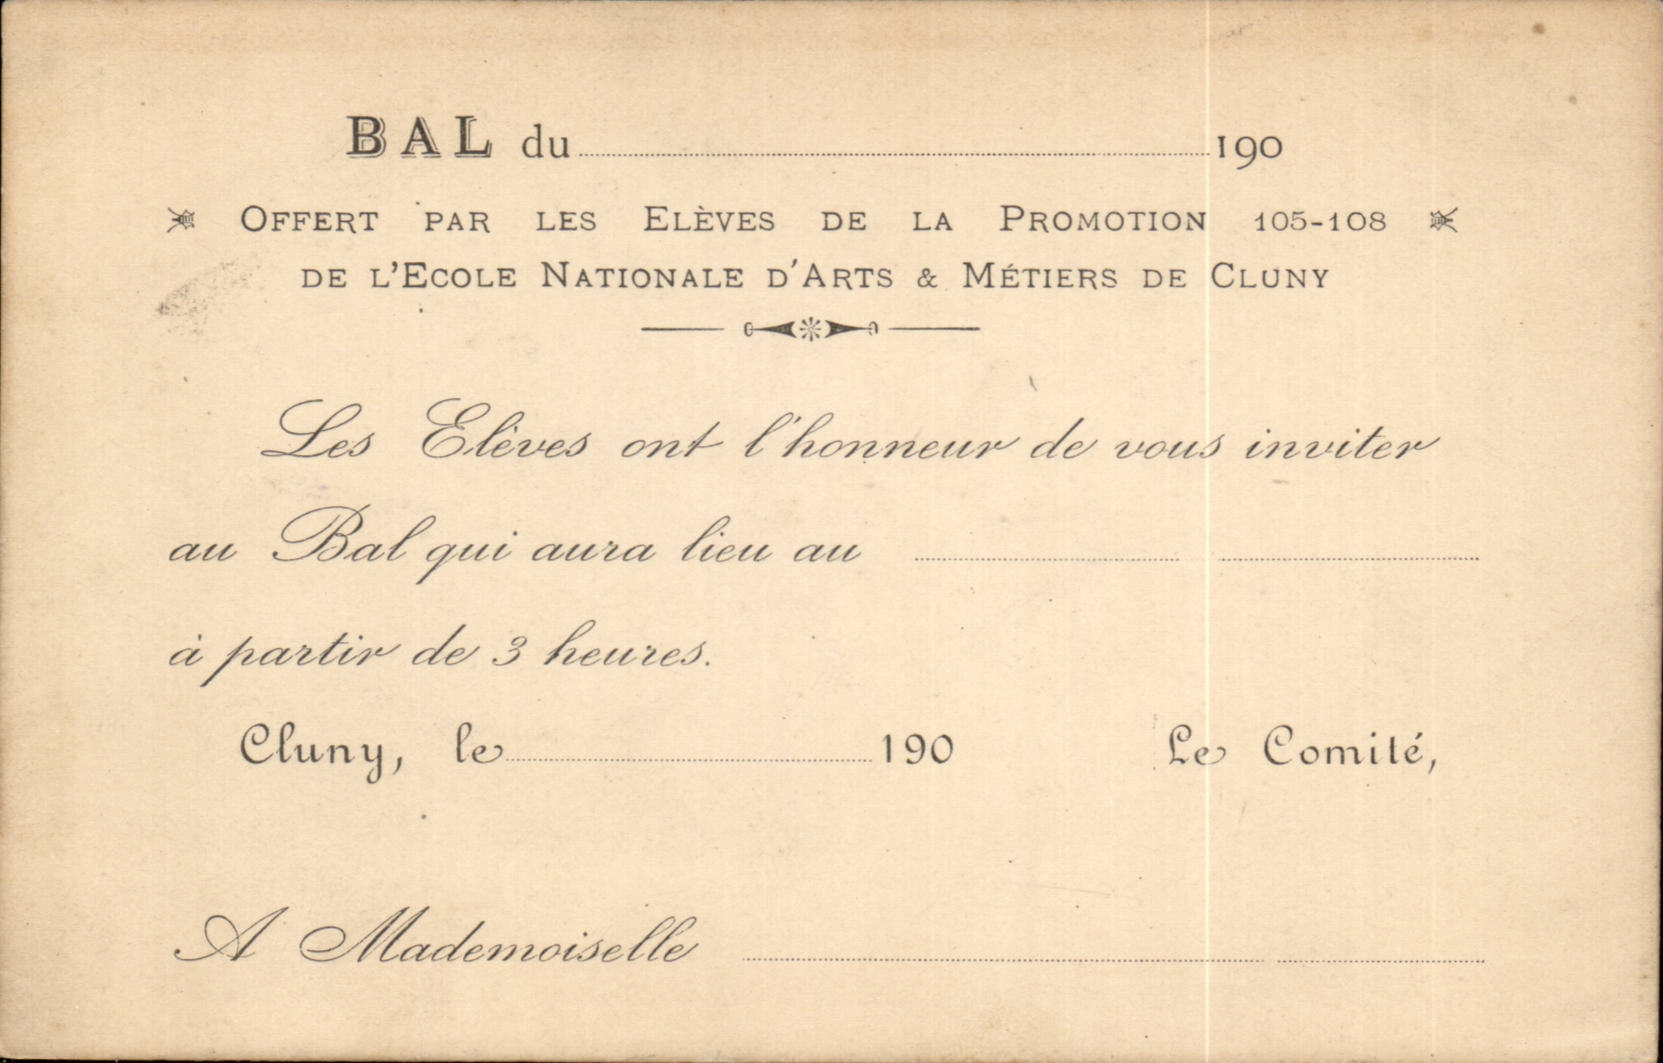 BAL du 190
OFFERT PAR LES ELÈVES DE LA PROMOTION 105-108
DE L'ECOLE NATIONALE D'ARTS & MÉTIERS DE CLUNY
Les Elèves ont l'honneur de vous inviter
au Bal qui aura lieu au
à partir de 3 heures.
Cluny, le 190 Le Comité,
A Mademoiselle